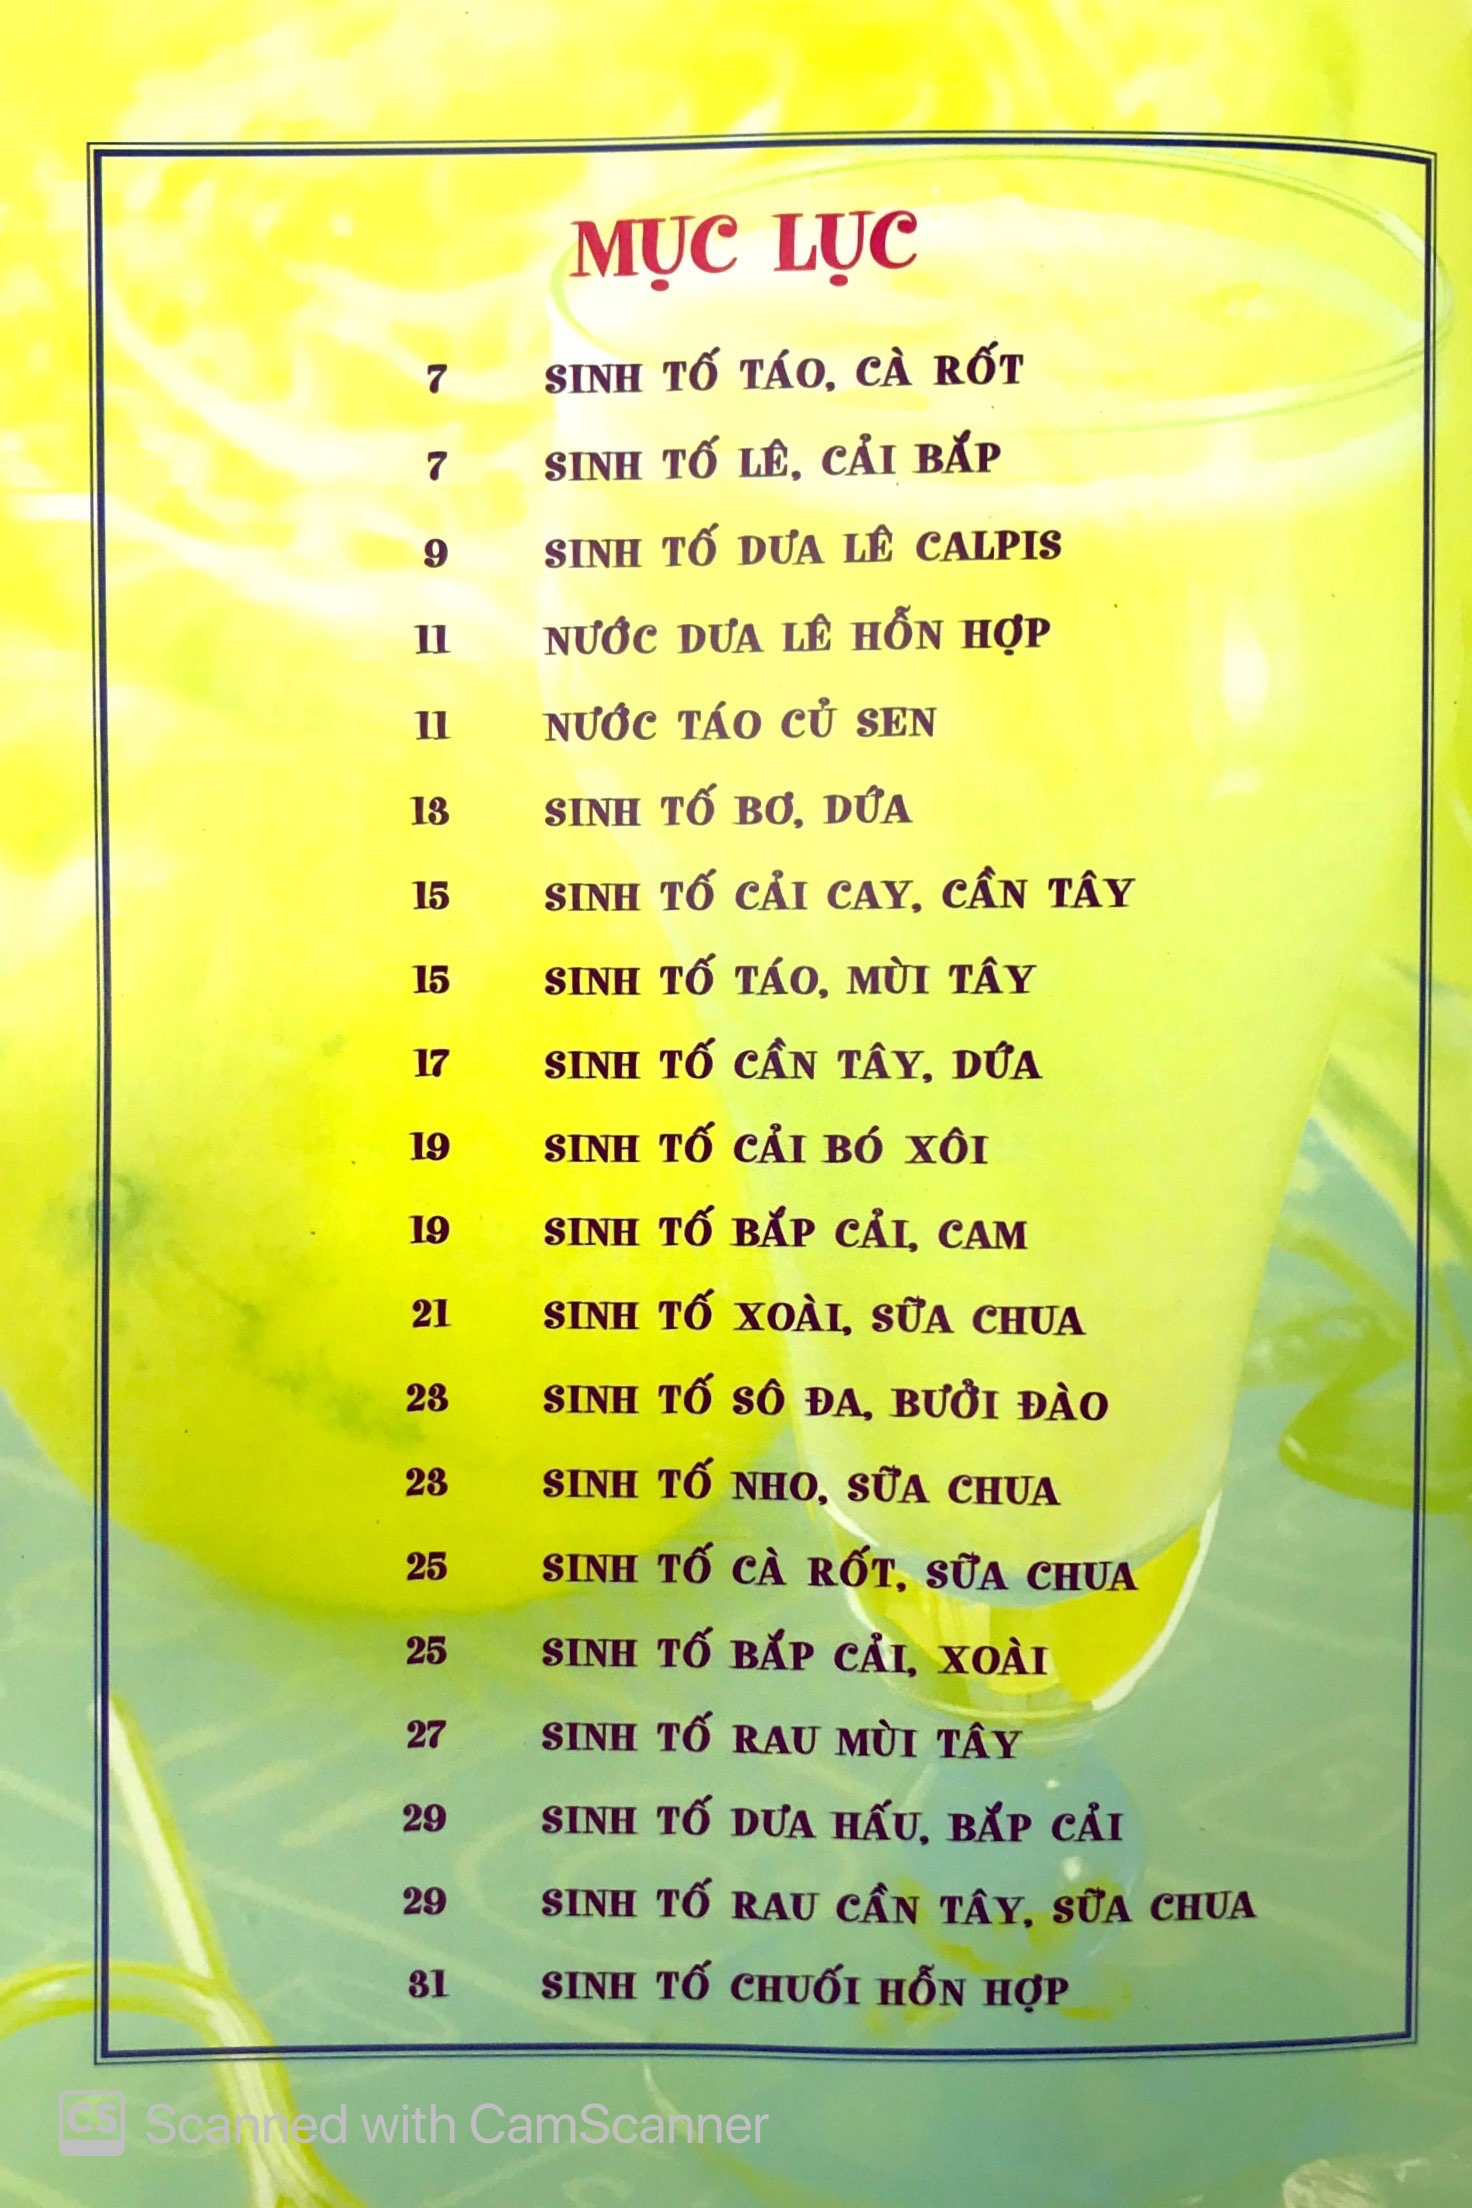 MỤC LỤC
7 SINH TỐ TÁO, CÀ RỐT
7 SINH TỐ LÊ, CẢI BẮP
9 SINH TỐ DƯA LÊ CALPIS
11 NƯỚC DƯA LÊ HỖN HỢP
11 NƯỚC TÁO CỦ SEN
13 SINH TỐ BƠ, DỨA
15 SINH TỐ CẢI CAY, CẦN TÂY
15 SINH TỐ TÁO, MÙI TÂY
17 SINH TỐ CẦN TÂY, DỨA
19 SINH TỐ CẢI BÓ XÔI
19 SINH TỐ BẮP CẢI, CAM
21 SINH TỐ XOÀI, SỮA CHUA
23 SINH TỐ SÔ ĐA, BƯỞI ĐÀO
23 SINH TỐ NHO, SỮA CHUA
25 SINH TỐ CÀ RỐT, SỮA CHUA
25 SINH TỐ BẮP CẢI, XOÀI
27 SINH TỐ RAU MÙI TÂY
29 SINH TỐ DƯA HẤU, BẮP CẢI
29 SINH TỐ RAU CẦN TÂY, SỮA CHUA
31 SINH TỐ CHUỐI HỖN HỢP
CS Scanned with CamScanner